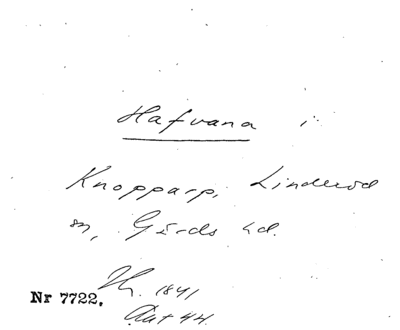 Hafvana i
Knopparp, Linderöd
sn, Gärds hd.
Hr. 1841
Nr 7722.
Aut 44.